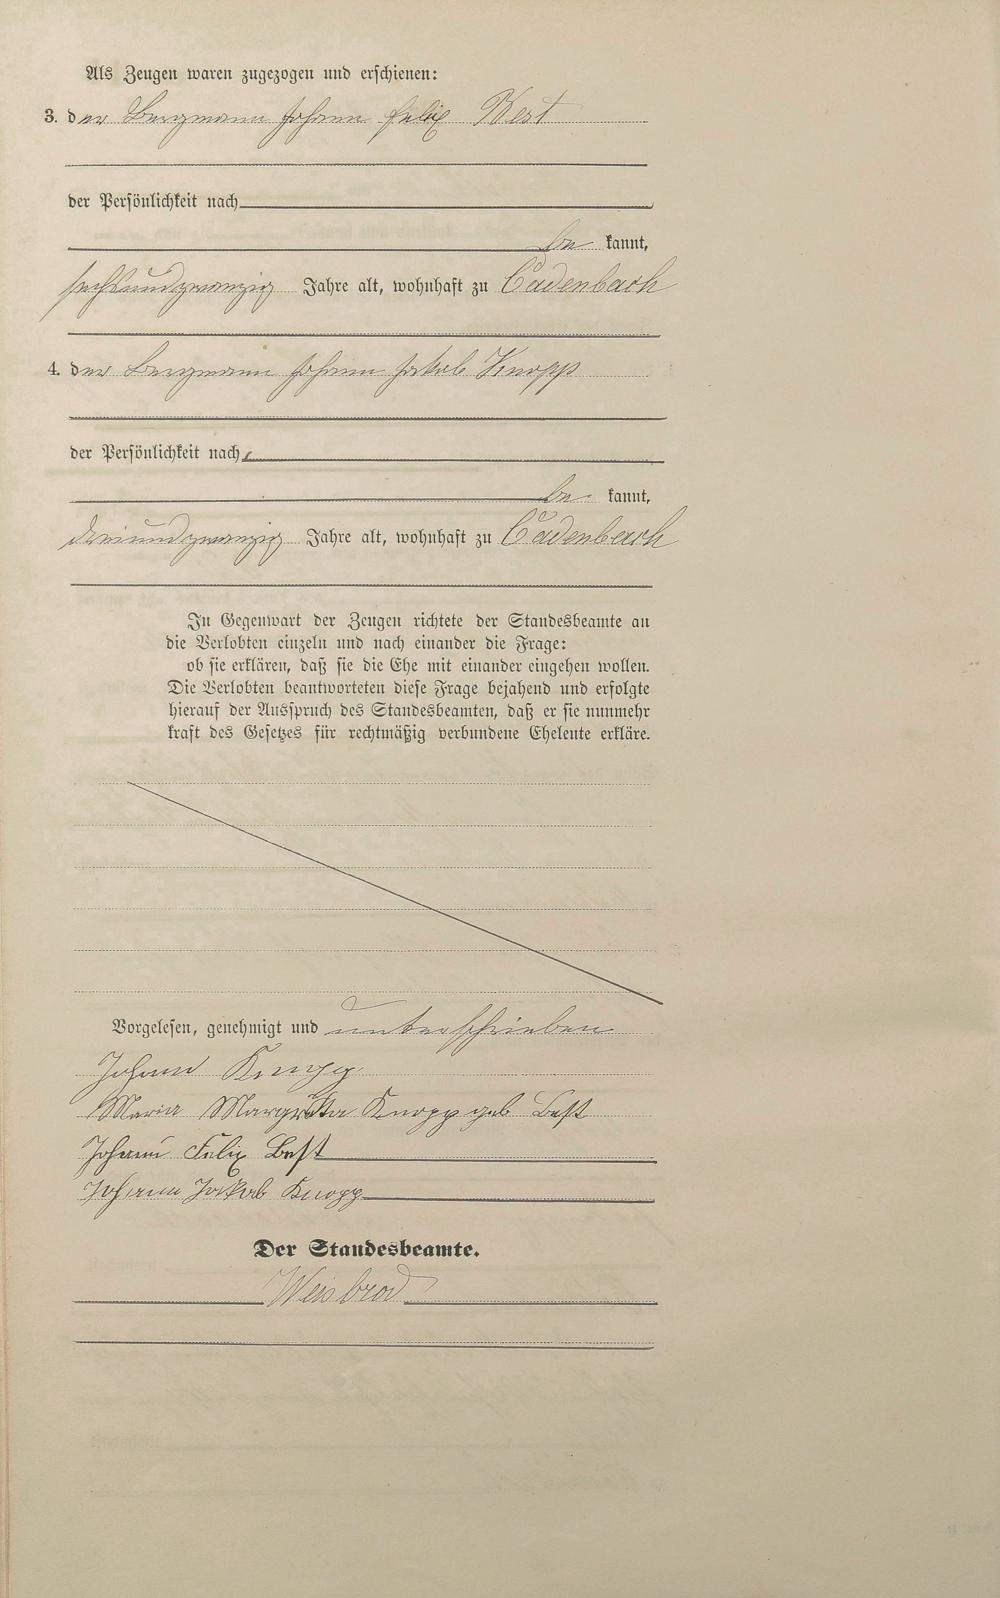 Als Zeugen waren zugezogen und erschienen:
3. der Bergmann Johann Felix Best
der Persönlichkeit nach
be kannt,
sechsundzwanzig Jahre alt, wohnhaft zu Cadenbach
4. der Bergmann Johann Jakob Knopp
der Persönlichkeit nach
be kannt,
dreiundzwanzig Jahre alt, wohnhaft zu Cadenbach
In Gegenwart der Zeugen richtete der Standesbeamte an
die Verlobten einzeln und nach einander die Frage:
ob sie erklären, daß sie die Ehe mit einander eingehen wollen.
Die Verlobten beantworteten diese Frage bejahend und erfolgte
hierauf der Ausspruch des Standesbeamten, daß er sie nunmehr
kraft des Gesetzes für rechtmäßig verbundene Eheleute erkläre.
Vorgelesen, genehmigt und unterschrieben
Johann Knopp
Maria Margreta Knopp geb Best
Johann Felix Best
Johann Jakob Knopp
Der Standesbeamte.
Weisbrod